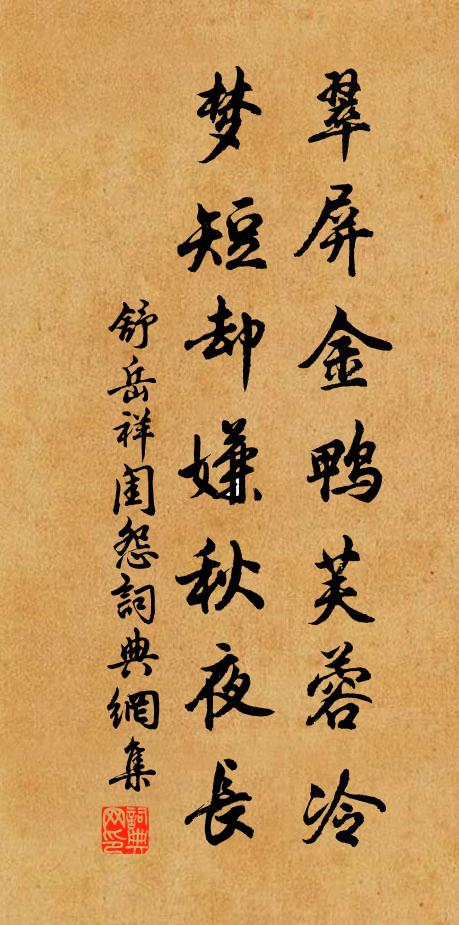 翠屏金鸭芙蓉冷
梦短却嫌秋夜长
舒岳祥闺怨詞典網集
詞典网印